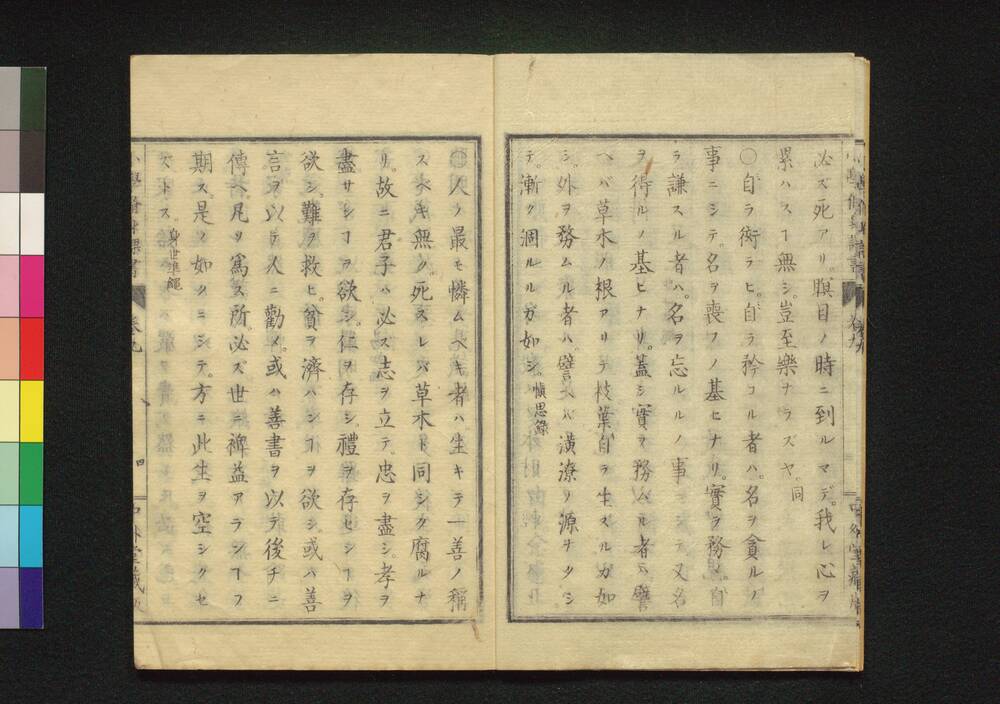 必ズ死アリ。瞑目ノ時ニ到ルマデ。我レ心ヲ
累ハスヿ無シ。豈至樂ナラズヤ。同
○自ラ衒ラヒ。自ラ矜コル者ハ。名ヲ貪ルノ
事ニシテ。名ヲ喪フノ基ヒナリ。實ヲ務メ。自
ラ謙スル者ハ。名ヲ忘ルルノ事ニシテ。又名
ヲ得ルノ基ヒナリ。蓋シ實ヲ務ムル者ハ。譬
ヘバ草木ノ根アリテ。枝葉自ラ生ズルガ如
シ。外ヲ務ムル者ハ。譬ヘバ潢潦ノ源ナクシ
テ。漸ク涸ルルガ如シ。愼思錄
○人ノ最モ憐ムヘキ者ハ。生キテ一善ノ稱
スヘキ無ク。死スレバ草木ト同シク腐ルナ
リ。故ニ君子ハ必ス志ヲ立テ。忠ヲ盡シ。孝ヲ
盡サンヿヲ欲シ。仁ヲ存シ。禮ヲ存センヿヲ
欲シ。難ヲ救ヒ。貧ヲ濟ハンヿヲ欲シ。或ハ善
言ヲ以テ人ニ勸メ。或ハ善書ヲ以テ後チニ
傳ヘ。凡ソ爲ス所。必ズ世ニ裨益アランヿヲ
期ス。是ノ如クニシテ。方ニ此生ヲ空シクセ
ズトス。身世準繩
卷九
四